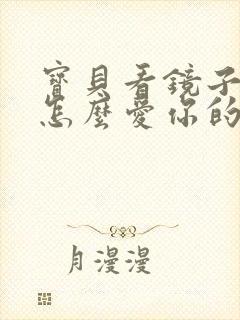 寶貝看鏡子
怎麼愛你的
月漫漫